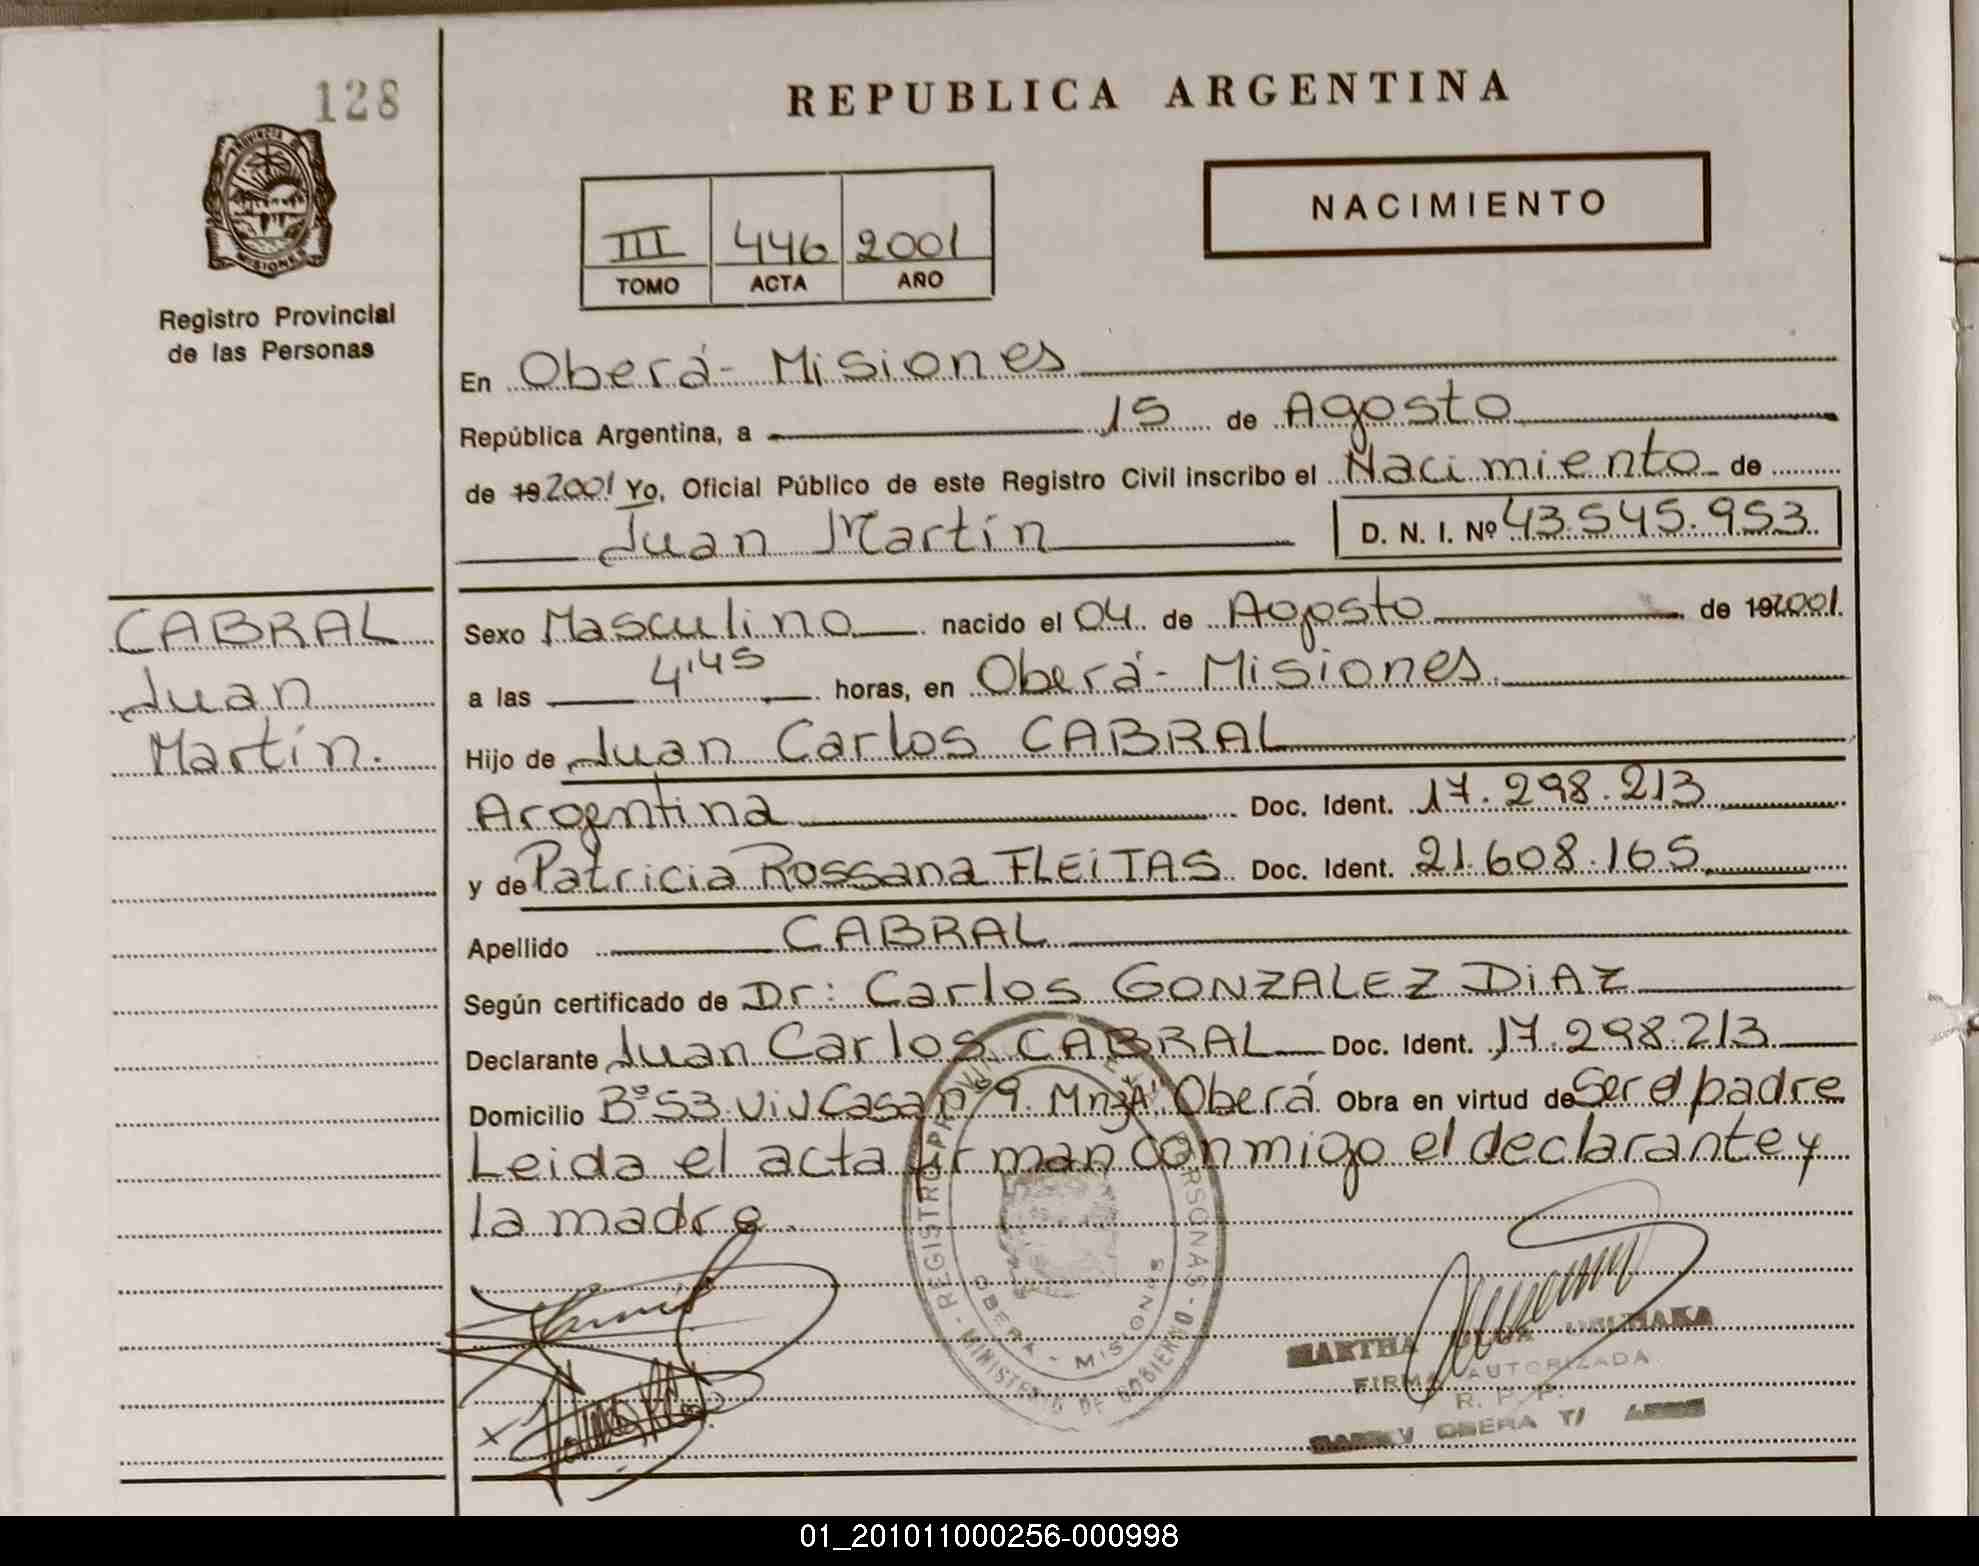 128
PROVINCIA DE
MISIONES
Registro Provincial
de las Personas
REPUBLICA ARGENTINA
NACIMIENTO
III 446 2001
TOMO ACTA AÑO
En Oberá - Misiones
República Argentina, a 15 de Agosto
de 19 2001 Yo, Oficial Público de este Registro Civil inscribo el Nacimiento de
Juan Martín D. N. I. Nº 43.545.953.
CABRAL
Juan
Martín.
Sexo Masculino nacido el 04 de Agosto de 19 2001.
a las 4'45 horas, en Oberá - Misiones.
Hijo de Juan Carlos CABRAL
Argentina Doc. Ident. 17.298.213
y de Patricia Rossana FLEITAS Doc. Ident. 21.608.165
Apellido CABRAL
Según certificado de Dr: Carlos GONZALEZ DIAZ
Declarante Juan Carlos CABRAL Doc. Ident. 17.298.213
Domicilio Bº 53 Viv Casa nº 9 Mnz "A" Oberá Obra en virtud de Ser el padre
Leida el acta firman conmigo el declarante y
la madre.
REGISTRO PROVINCIAL PERSONAS - MINISTERIO DE GOBIERNO
OBERA - MISIONES
MARTHA
FIRMA AUTORIZADA
R. P. P.
OBERA T/
01_201011000256-000998